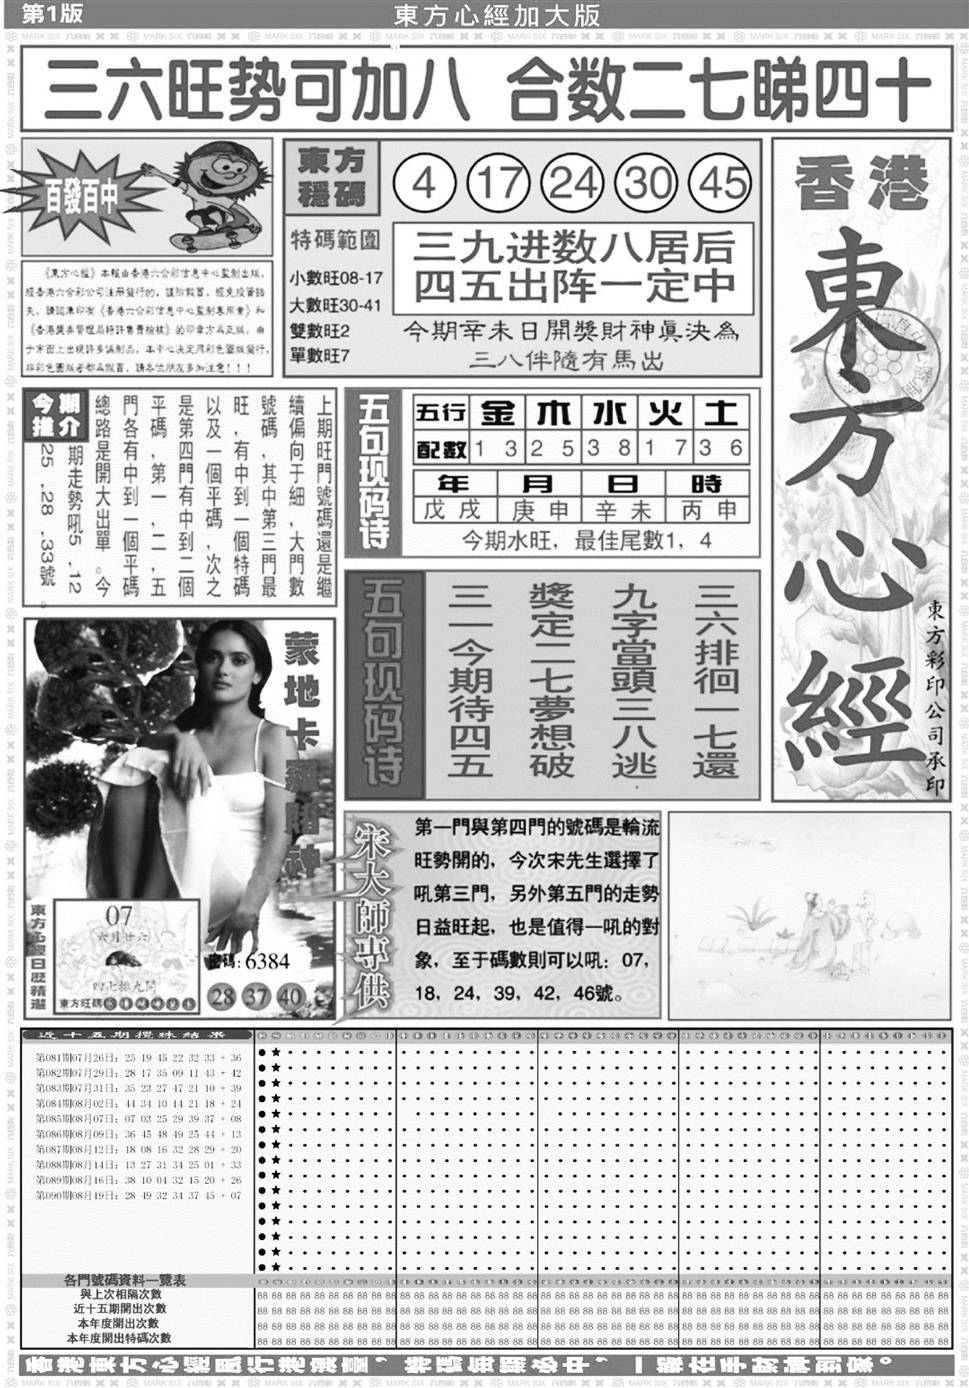 第1版
東方心經加大版
三六旺势可加八 合数二七睇四十
百發百中
《東方心經》本報由香港六合彩信息中心監制出版，
經香港六合彩公司注册發行的，謹防假冒，經免投資
失，請認準印有《香港六合彩信息中心監制專用章》和
《香港獎券管理局特許售賣檢核》的印章方爲正版，由
于市面上出現許多
東方
穩碼
4 17 24 30 45
特碼範圍
小數旺08-17
大數旺30-41
雙數旺2
單數旺7
三九进数八居后
四五出阵一定中
今期辛未日開獎財神真決為
三八伴隨有馬出
香港
東方心經
東方彩印公司承印
今期推介
上期旺門號碼還是繼
續偏向于細，大門數
號碼，其中第三門最
旺，有中到一個特碼
以及一個平碼，次之
是第四門有中到二個
平碼，第一，二，五
門各有中到一個平碼
總路是開大出單。今
期走勢吼5，12
25，28，33號。
五句现码诗
五行 金 木 水 火 土
配數 1 3 2 5 3 8 1 7 3 6
年 月 日 時
戊戌 庚申 辛未 丙申
今期水旺，最佳尾數1，4
五句现码诗
三六排徊一七還
九字當頭三八逃
獎定二七夢想破
三一今期待四五
蒙地卡羅賭神
07
六月廿六
四七排九開
東方旺碼
密碼：6384
28 37 40
宋大師專供
第一門與第四門的號碼是輪流
旺勢開的，今次宋先生選擇了
吼第三門，另外第五門的走勢
日益旺起，也是值得一吼的對
象，至于碼數則可以吼：07，
18，24，39，42，46號。
近十五期攪珠結果
第081期07月26日：25 19 45 22 32 33 + 36
第082期07月29日：28 17 35 09 11 43 + 42
第083期07月31日：35 23 27 47 21 10 + 39
第084期08月02日：44 34 10 14 21 18 + 24
第085期08月07日：07 03 25 29 39 37 + 08
第086期08月09日：36 45 48 49 25 44 + 13
第087期08月12日：18 08 16 32 28 29 + 20
第088期08月14日：13 27 31 34 25 01 + 33
第089期08月16日：38 10 04 32 15 20 + 26
第090期08月19日：28 49 32 34 37 45 + 07
各門號碼資料一覽表
與上次相隔次數
近十五期開出次數
本年度開出次數
本年度開出特碼次數
香港東方心經風行港澳臺，特碼每期必中，一版在手財神到家。